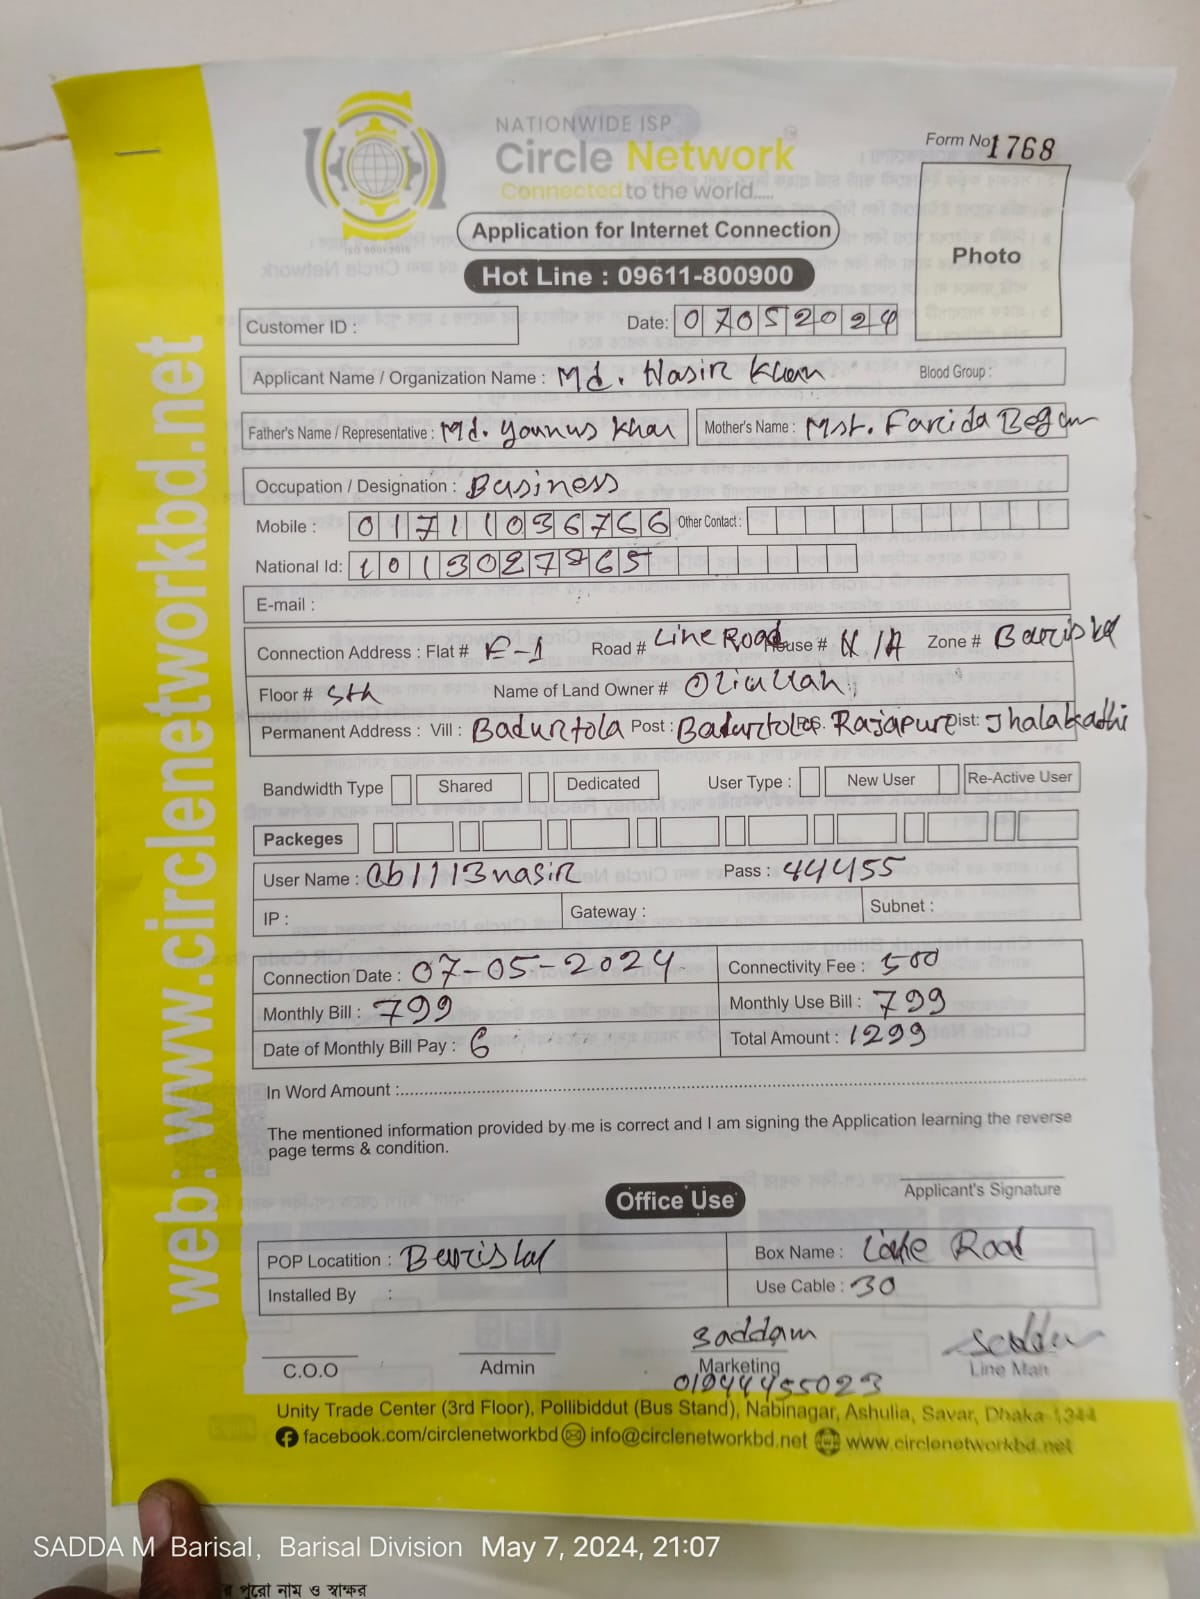 NATIONWIDE ISP
Circle Network
Connected to the world.....
ISO 9001:2015
Form No 1768
Application for Internet Connection
Photo
Hot Line : 09611-800900
Customer ID :
Date: 07052024
Applicant Name / Organization Name : Md. Nasir Khan
Blood Group :
Father's Name / Representative : Md. Younus Khan Mother's Name : Mst. Farida Begum
Occupation / Designation : Business
Mobile : 01711036766 Other Contact :
National Id: 1013027865
E-mail :
Connection Address : Flat # E-1 Road # Line Road House # N/A Zone # Barishal
Floor # 5th Name of Land Owner # Oliullah
Permanent Address : Vill : Badurtola Post : Badurtola PS. Rajapur Dist: Jhalakathi
Bandwidth Type Shared Dedicated User Type : New User Re-Active User
Packeges
User Name : cb1113nasir Pass : 44455
IP : Gateway : Subnet :
Connection Date : 07-05-2024 Connectivity Fee : 500
Monthly Bill : 799 Monthly Use Bill : 799
Date of Monthly Bill Pay : 6 Total Amount : 1299
In Word Amount :
The mentioned information provided by me is correct and I am signing the Application learning the reverse
page terms & condition.
Applicant's Signature
Office Use
POP Locatition : Barishal Box Name : Line Road
Installed By : Use Cable : 30
saddam
C.O.O Admin Marketing Line Man
01944455023
Unity Trade Center (3rd Floor), Pollibiddut (Bus Stand), Nabinagar, Ashulia, Savar, Dhaka-1344
facebook.com/circlenetworkbd info@circlenetworkbd.net www.circlenetworkbd.net
web: www.circlenetworkbd.net
SADDA M Barisal, Barisal Division May 7, 2024, 21:07
পুরো নাম ও স্বাক্ষর